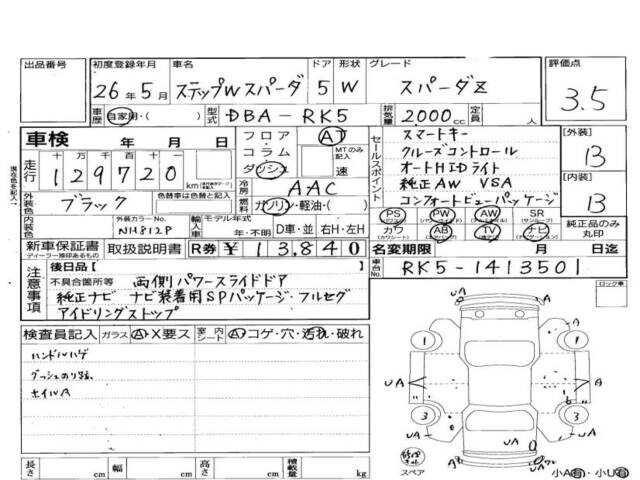 出品番号
初度登録年月
26年5月
車名
ステップWスパーダ
ドア
5
形状
W
グレード
スパーダZ
評価点
3.5
車歴
自家用・( )
型式
DBA-RK5
排気量
2000cc
定員
人
車検 年 月 日
フロア・
コラム・
ダッシュ
AT
MTのみ記入
速
セールスポイント
スマートキー
クルーズコントロール
オートHIDライト
純正AW VSA
コンフォートビューパッケージ
[外装]
B
[内装]
B
走行
十万 万 千 百 十
129720
km
冷房
AAC
外装色
ブラック
色替車は色替と記入
燃料
ガソリン・軽油・( )
PS
PW
AW
SR
カワ
AB
TV
ナビ
純正品のみ丸印
内装色
外装カラーNo.
NH812P
輸入車
モデル年式
年・不明
D車・並
右H・左H
新車保証書
ディーラー捺印あるもの
取扱説明書
R券
¥13,840
名変期限 月 日迄
車台No.
RK5-1413501
注意事項
後日品[ ]
不具合箇所等
両側パワースライドドア
純正ナビ ナビ装着用SPパッケージ・フルセグ
アイドリングストップ
ロック車
検査員記入
ガラス
A・X要ス
室内シート
A・コゲ・穴・汚れ・破れ
ハンドルハゲ
ホイルA
1
1
UA
A
A
3
3
UA
UA
A
スペア
小A有・小U有
長さ cm
幅 cm
高さ cm
積載量 kg